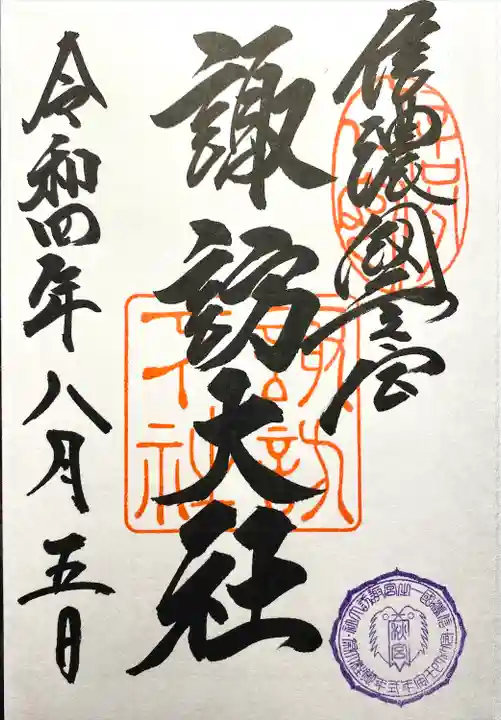 信濃國一之宮
諏訪大社
令和四年八月五日
諏訪大社
秋宮